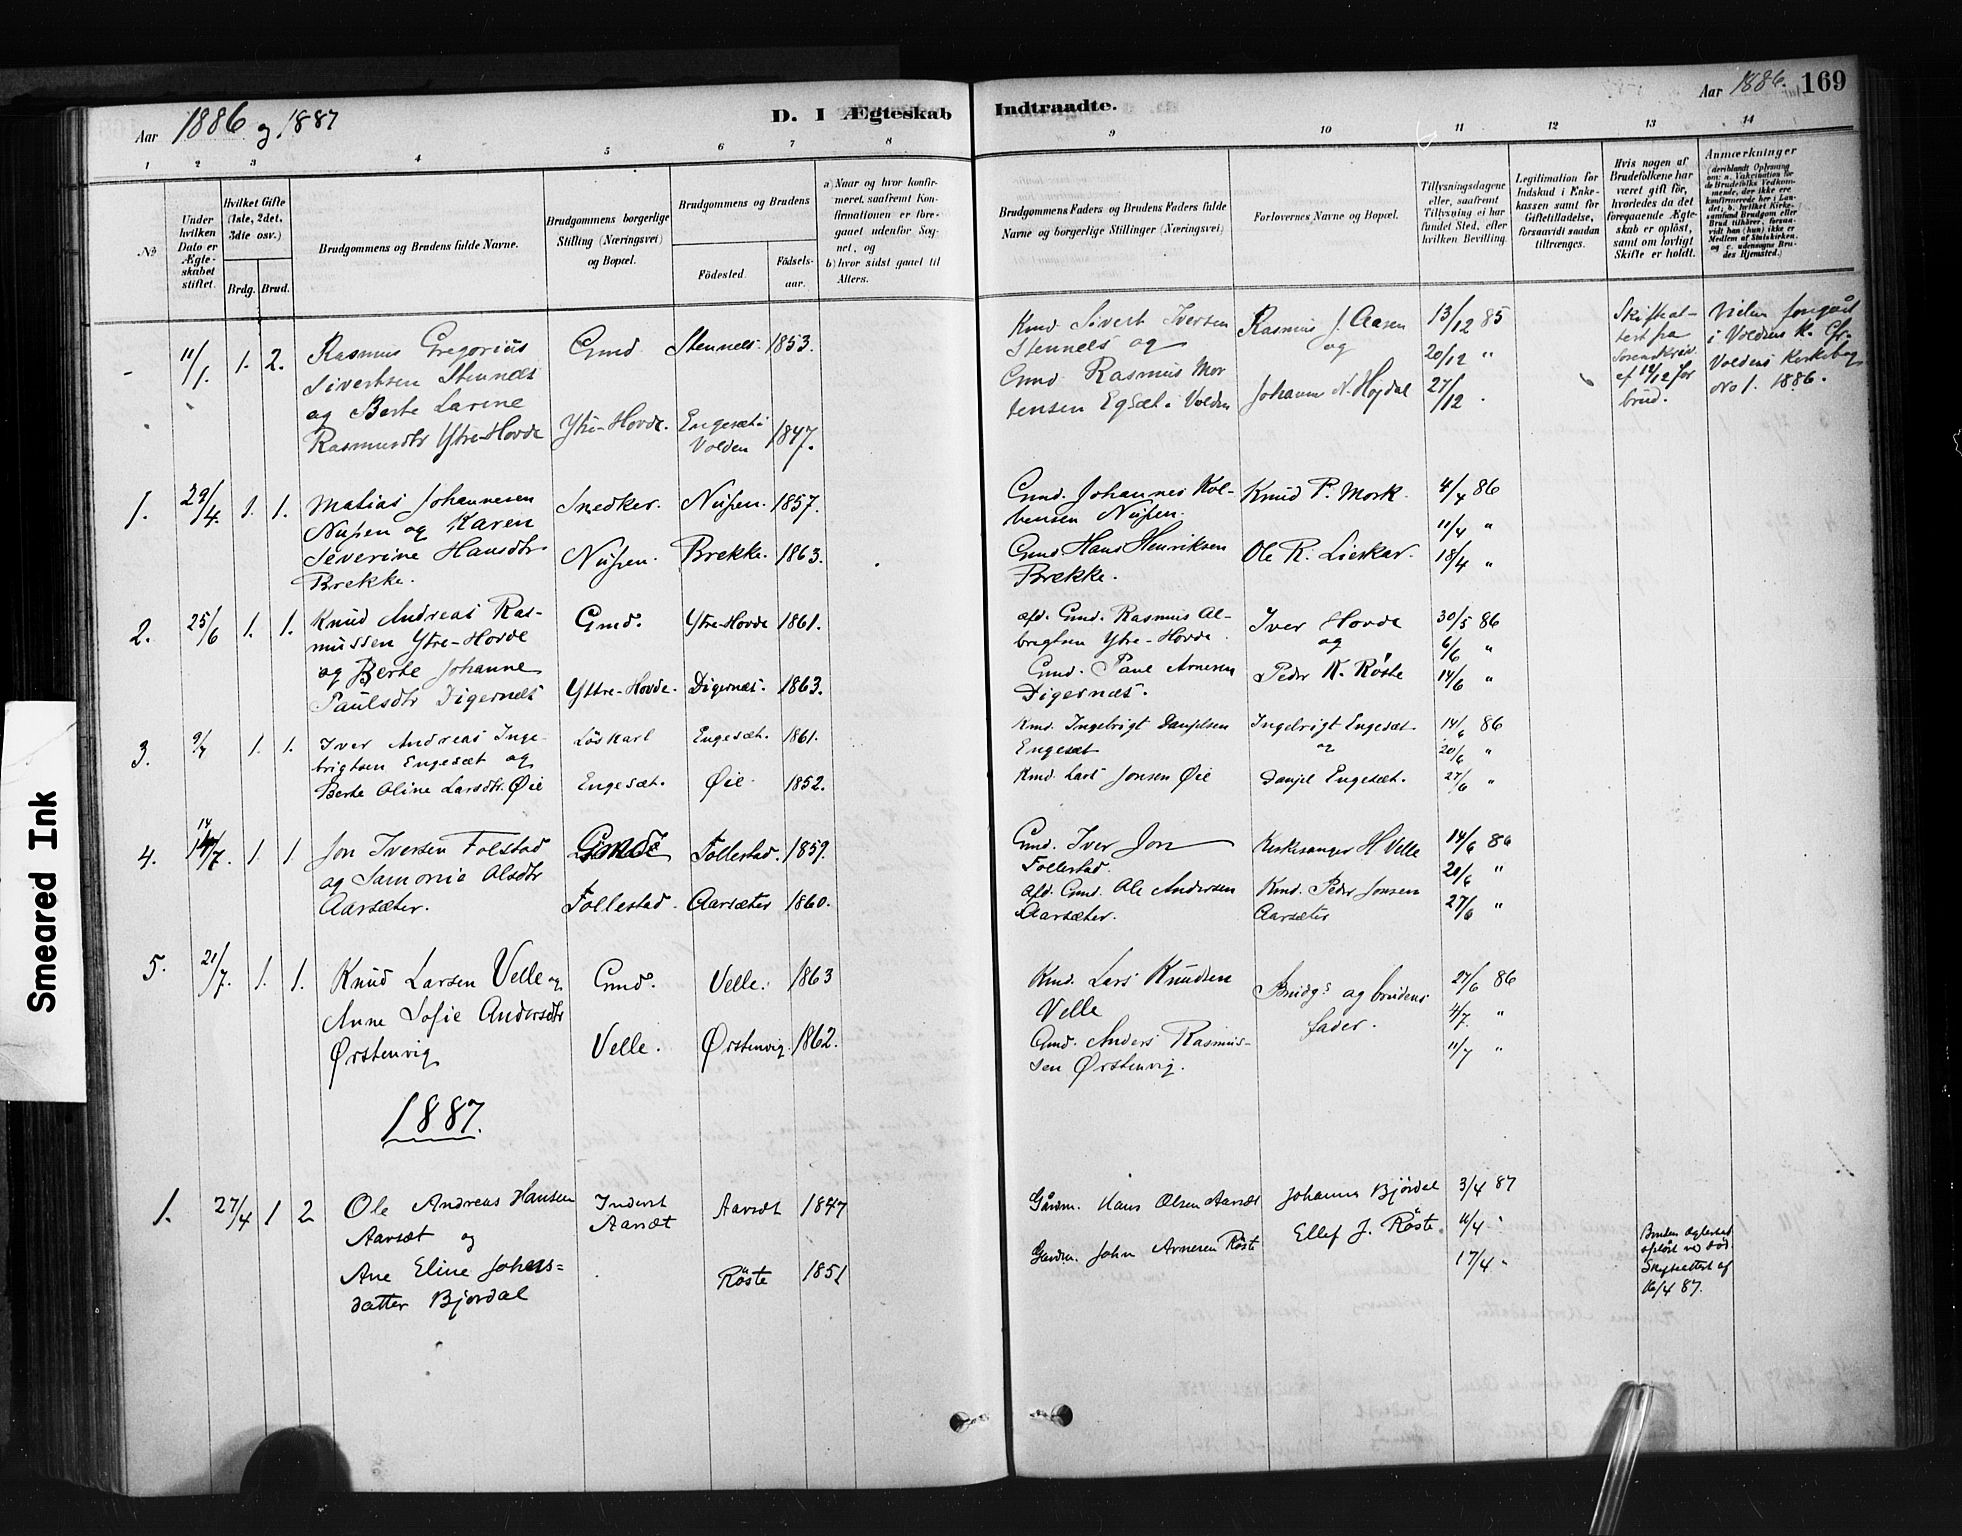 Aar 1886 og 1887
D. I Ægteskab Indtraadte.
Aar 1886. 169
1 2 3 4 5 6 7 8 9 10 11 12 13 14
No
Under hvilken Dato er Ægteskabet stiftet.
Hvilket Gifte (1ste, 2det, 3die osv.)
Brdg. Brud.
Brudgommens og Brudens fulde Navne.
Brudgommens borgerlige Stilling (Næringsvei) og Bopæl.
Brudgommens og Brudens
Födested.
Födselsaar.
a) Naar og hvor konfirmeret, saafremt Konfirmationen er foregaaet udenfor Sognet, og
b) hvor sidst gaaet til Alters.
Brudgommens Faders og Brudens Faders fulde Navne og borgerlige Stillinger (Næringsvei)
Forlovernes Navne og Bopæl.
Tillysningsdagene eller, saafremt Tillysning ei har fundet Sted, efter hvilken Bevilling.
Legitimation for Indskud i Enkekassen samt for Giftetilladelse, forsaavidt saadan tiltrænges.
Hvis nogen af Brudefolkene har været gift för, hvorledes da det foregaaende Ægteskab er oplöst, samt om lovligt Skifte er holdt.
Anmærkninger
- 11/1. 1. 2.
Rasmus Gregorius
Sivertsen Stennes
og Berte Larine
Rasmusdtr Ytre-Hovde
Gmd Ytre-Hovde.
Stennes. 1853.
Engesæt i Volden 1847.
Kmd. Sivert Iversen
Stennes og
Gmd Rasmus Mor
tensen Egsæt i Volden
Rasmus J. Aasen
og
Johannes N. Højdal
13/12 85
20/12 "
27/12
Skifteat-
test fra
Sorenskriv.
af 12/12 for
brud.
Vielsen foregaat
i Voldens K. Cfr.
Voldens Kirkebog
No 1. 1886.
1. 29/4. 1. 1.
Matias Johannesen
Nupen og Karen
Severine Hansdtr
Brekke.
Snedker.
Nupen.
Nupen. 1857.
Brekke. 1863.
Gmd. Johannes Kol-
bensen Nupen.
Gmd Hans Henriksen
Brekke.
Knud P. Mork.
Ole R. Lieskar.
4/4 86
11/4 "
18/4 "
2. 25/6 1. 1.
Knud Andreas Ras-
mussen Ytre-Hovde
og Berte Johanne
Paulsdtr Digernes
Gmd.
Yttre-Hovde.
Ytre-Hovde 1861.
Digernes. 1863.
afd. Gmd. Rasmus Al-
brigtsen Ytre-Hovde.
Gmd. Paul Arnesen
Digernes.
Iver Hovde
og
Peder K. Röste
30/5 86
6/6 "
14/6 "
3. 9/7 1. 1.
Iver Andreas Inge-
brigtsen Engesæt og
Berte Oline Larsdtr. Øie
Løskarl
Engesæt.
Engesæt. 1861.
Øie. 1852.
Kmd. Ingebrigt Danjelsen
Engesæt
Kmd. Lars Jonsen Øie
Ingebrigt Engesæt
og
Danjel Engesæt.
14/6 86
20/6 "
27/6 "
4. 14/7. 1. 1.
Jon Iversen Folestad
og Samonie Olsdtr
Aarsæter.
Gmd.
Follestad.
Follestad. 1859.
Aarsæter 1860.
Gmd. Iver Jon
Follestad.
afd. Gmd. Ole Andersen
Aarsæter.
Kirkesanger H Velle
Kmd. Peder Jonsen
Aarsæter
14/6 86
20/6 "
27/6 "
5. 21/7. 1. 1.
Knud Larsen Velle og
Anne Sofie Andersdtr
Ørstenvig
Gmd.
Velle.
Velle. 1863
Ørstenvig. 1862.
Kmd. Lars Knudsen
Velle
Gmd. Anders Rasmus-
sen Ørstenvig.
Brudgs og brudens
fader.
27/6 86
4/7. "
11/7 "
1887.
1. 27/4 1 2
Ole Andreas Hansen
Aarsæt og
Ane Eline Johns=
datter Bjørdal
Inderst
Aarsæt
Aarsæt 1847
Röste 1851
Gårdm. Hans Olsen Aarsæt
Gårdm. John Arnesen Röste
Johannes Bjørdal
Ellef J. Röste
3/4 87
11/4 "
17/4 "
Bruden
opløst ved Død.
Skifteattest af
16/4 87.
Smeared Ink